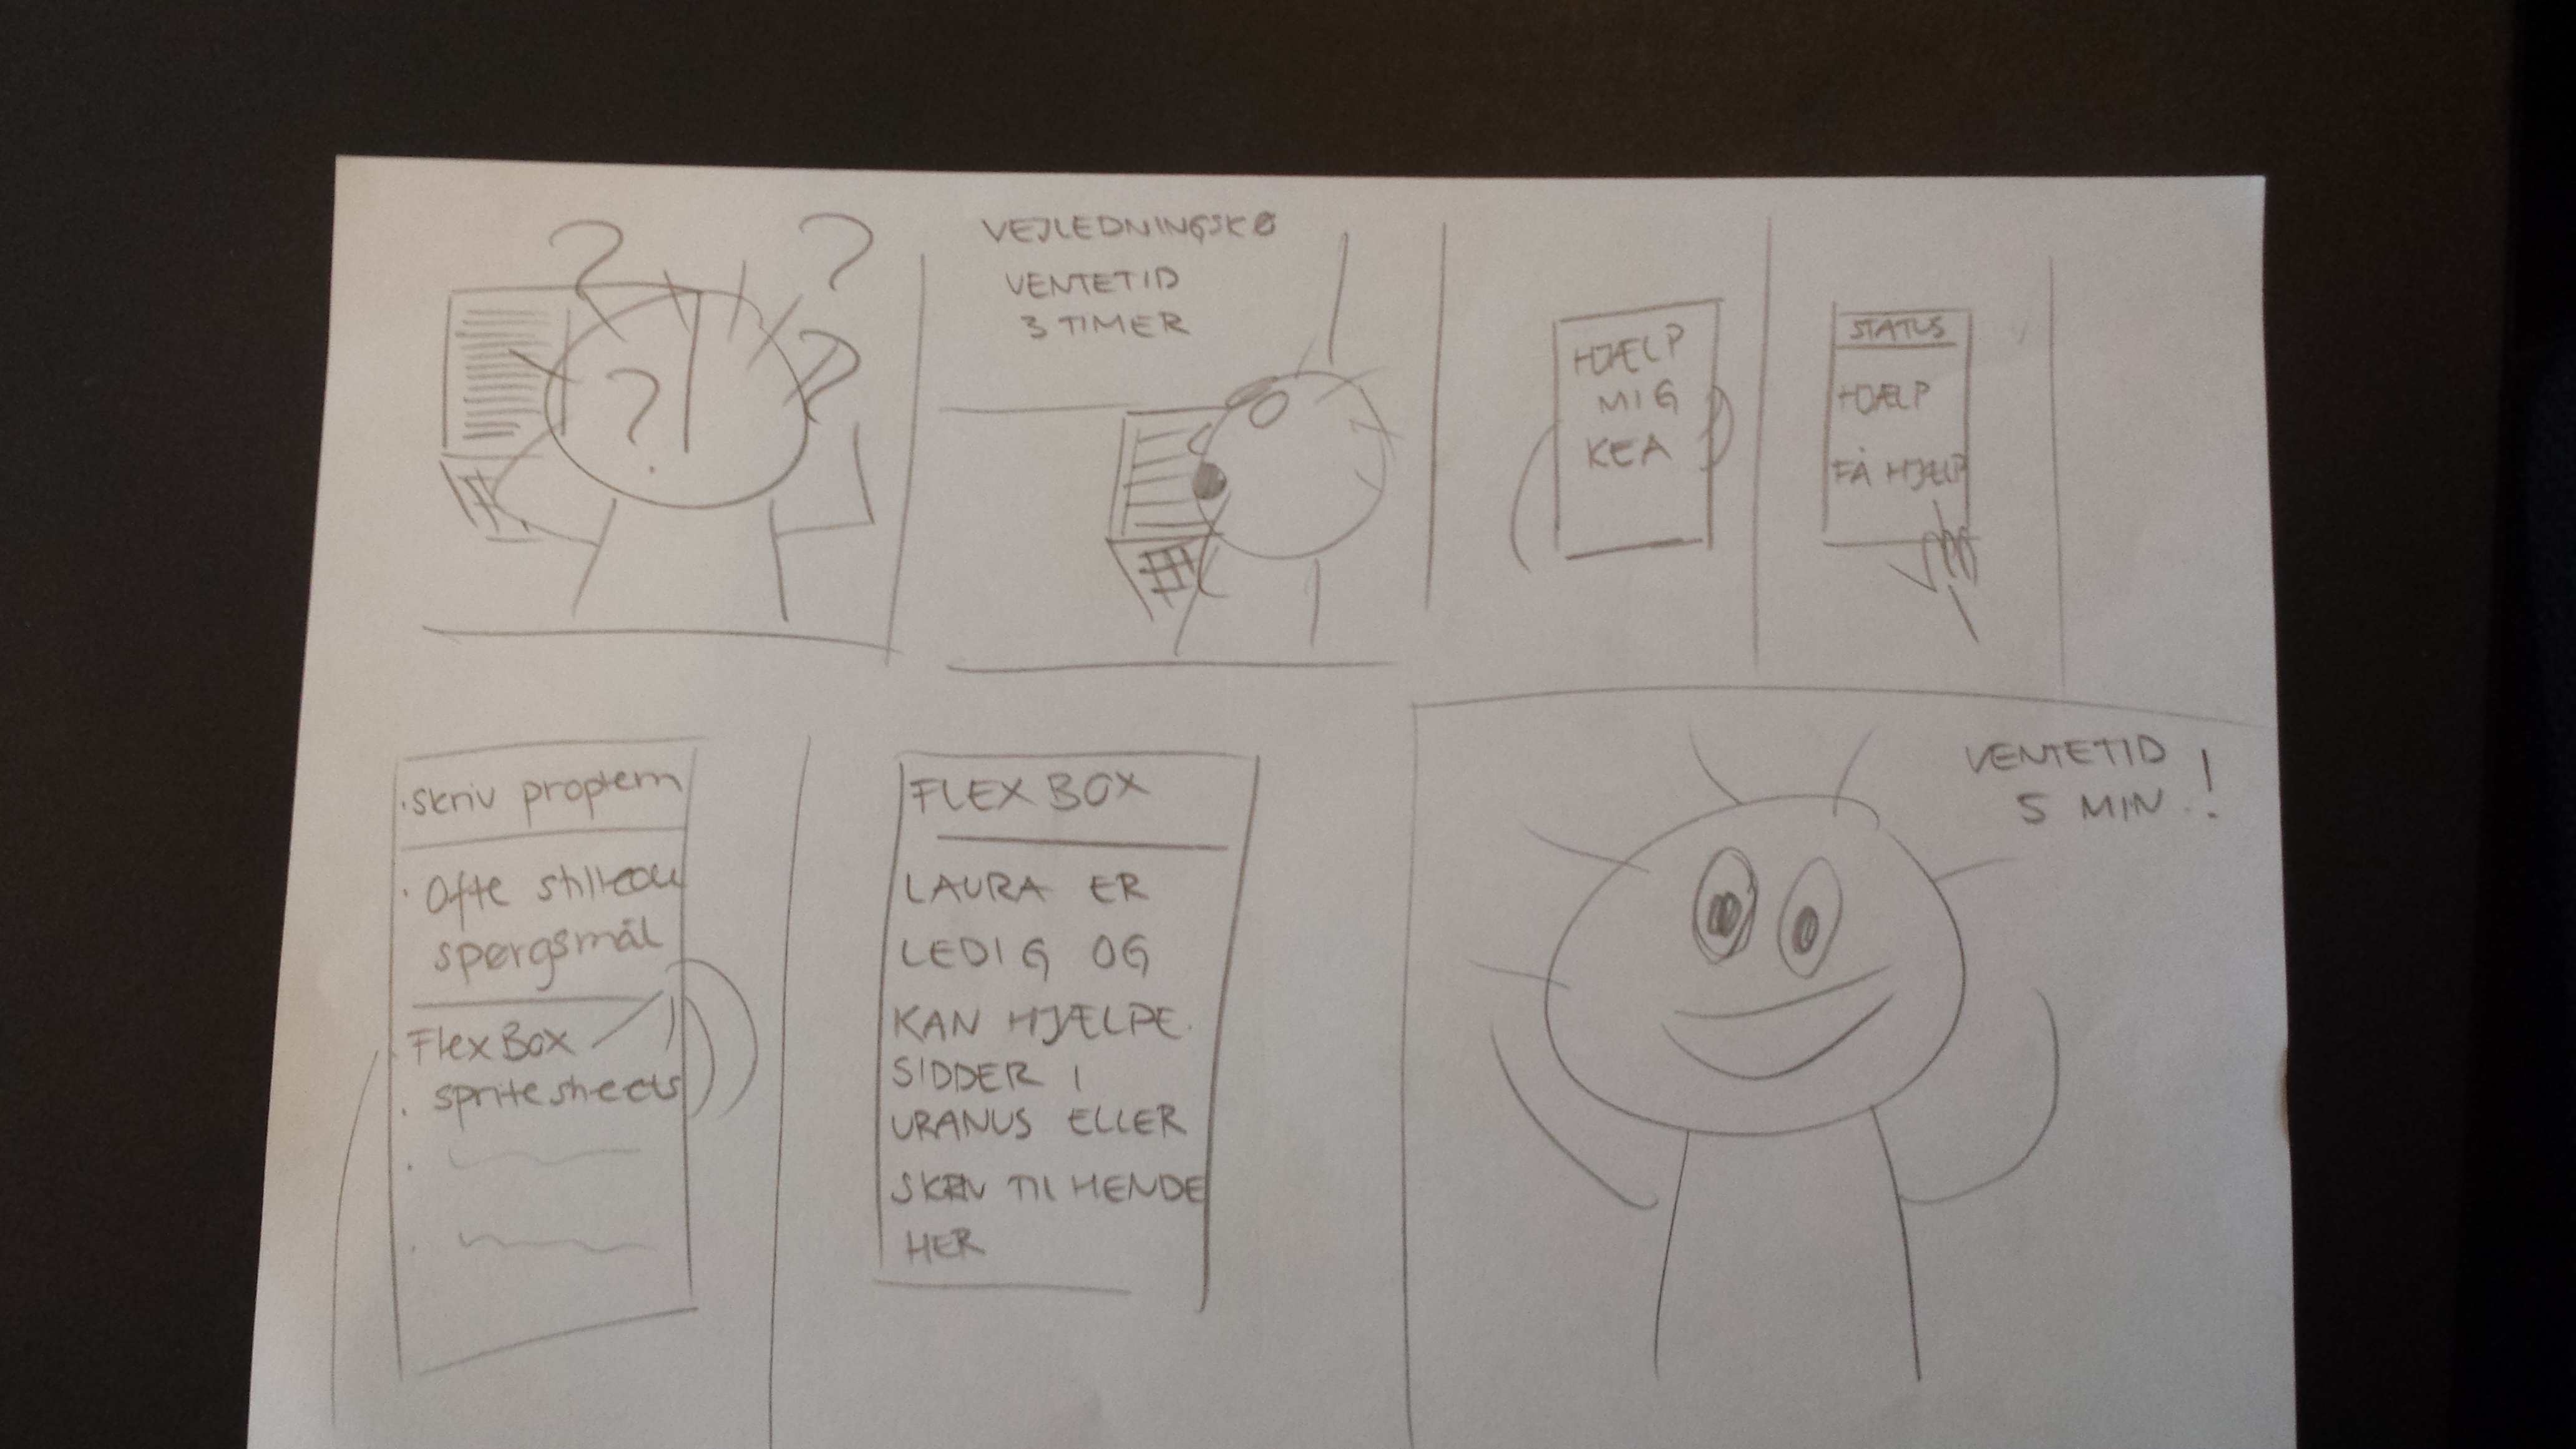 ?
?
?
?
VEJLEDNINGSKØ
VENTETID
3 TIMER
HJÆLP
MIG
KEA
STATUS
HJÆLP
FÅ HJÆLP
· Skriv proplem
· Ofte stillede
spørgsmål
Flex Box
· sprite sheets
FLEX BOX
LAURA ER
LEDIG OG
KAN HJÆLPE.
SIDDER I
URANUS ELLER
SKRIV TIL HENDE
HER
VENTETID
5 MIN.!